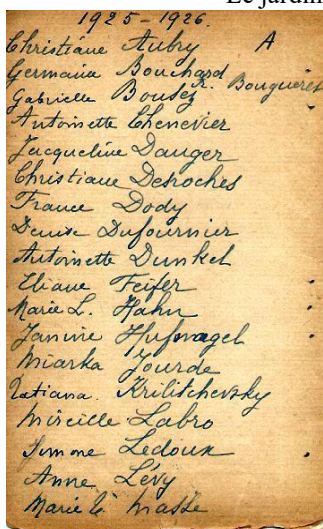 Le jardin
1925-1926.
Christiane Aubry A
Germaine Bouchard
Gabrielle Bousez R. Bougueret
Antoinette Chenevier
Jacqueline Dauger
Christiane Desroches
France Dody
Denise Dufournier
Antoinette Dunkel
Eliane Feifer
Marie L. Hahn
Janine Hufnagel
Miarka Jourde
Tatiana. Krilitchevsky
Mireille Labro
Simone Ledoux
Anne Lévy
Marie Masse